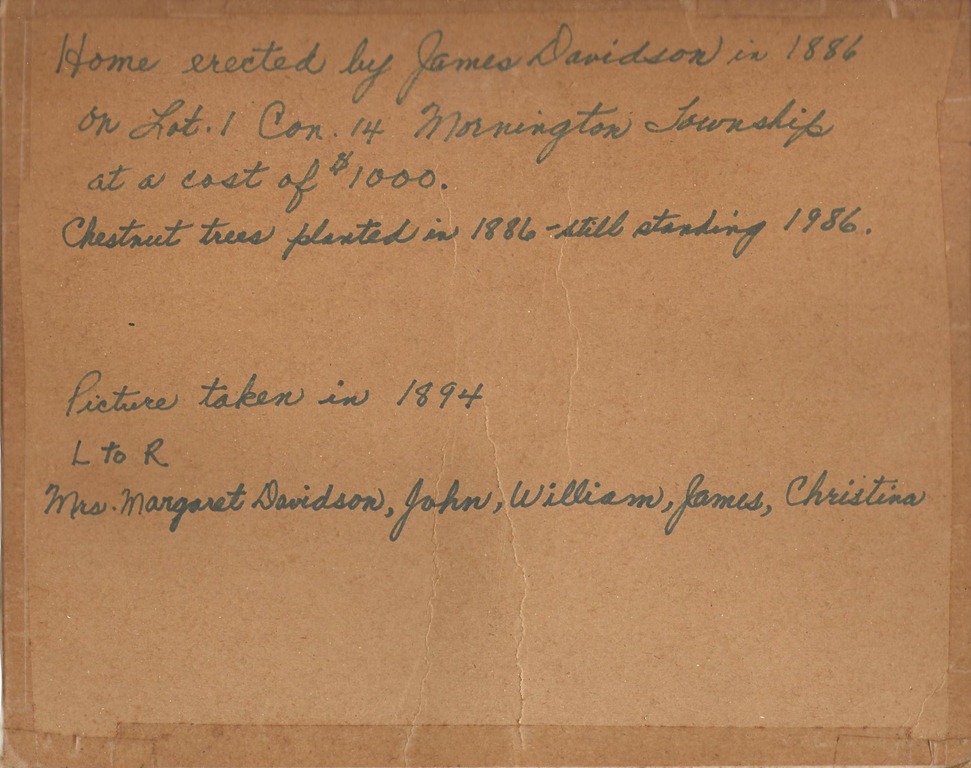 Home erected by James Davidson in 1886
on Lot. 1 Con. 14 Mornington Township
at a cost of $1000.
Chestnut trees planted in 1886 - still standing 1986.
Picture taken in 1894
L to R
Mrs. Margaret Davidson, John, William, James, Christina